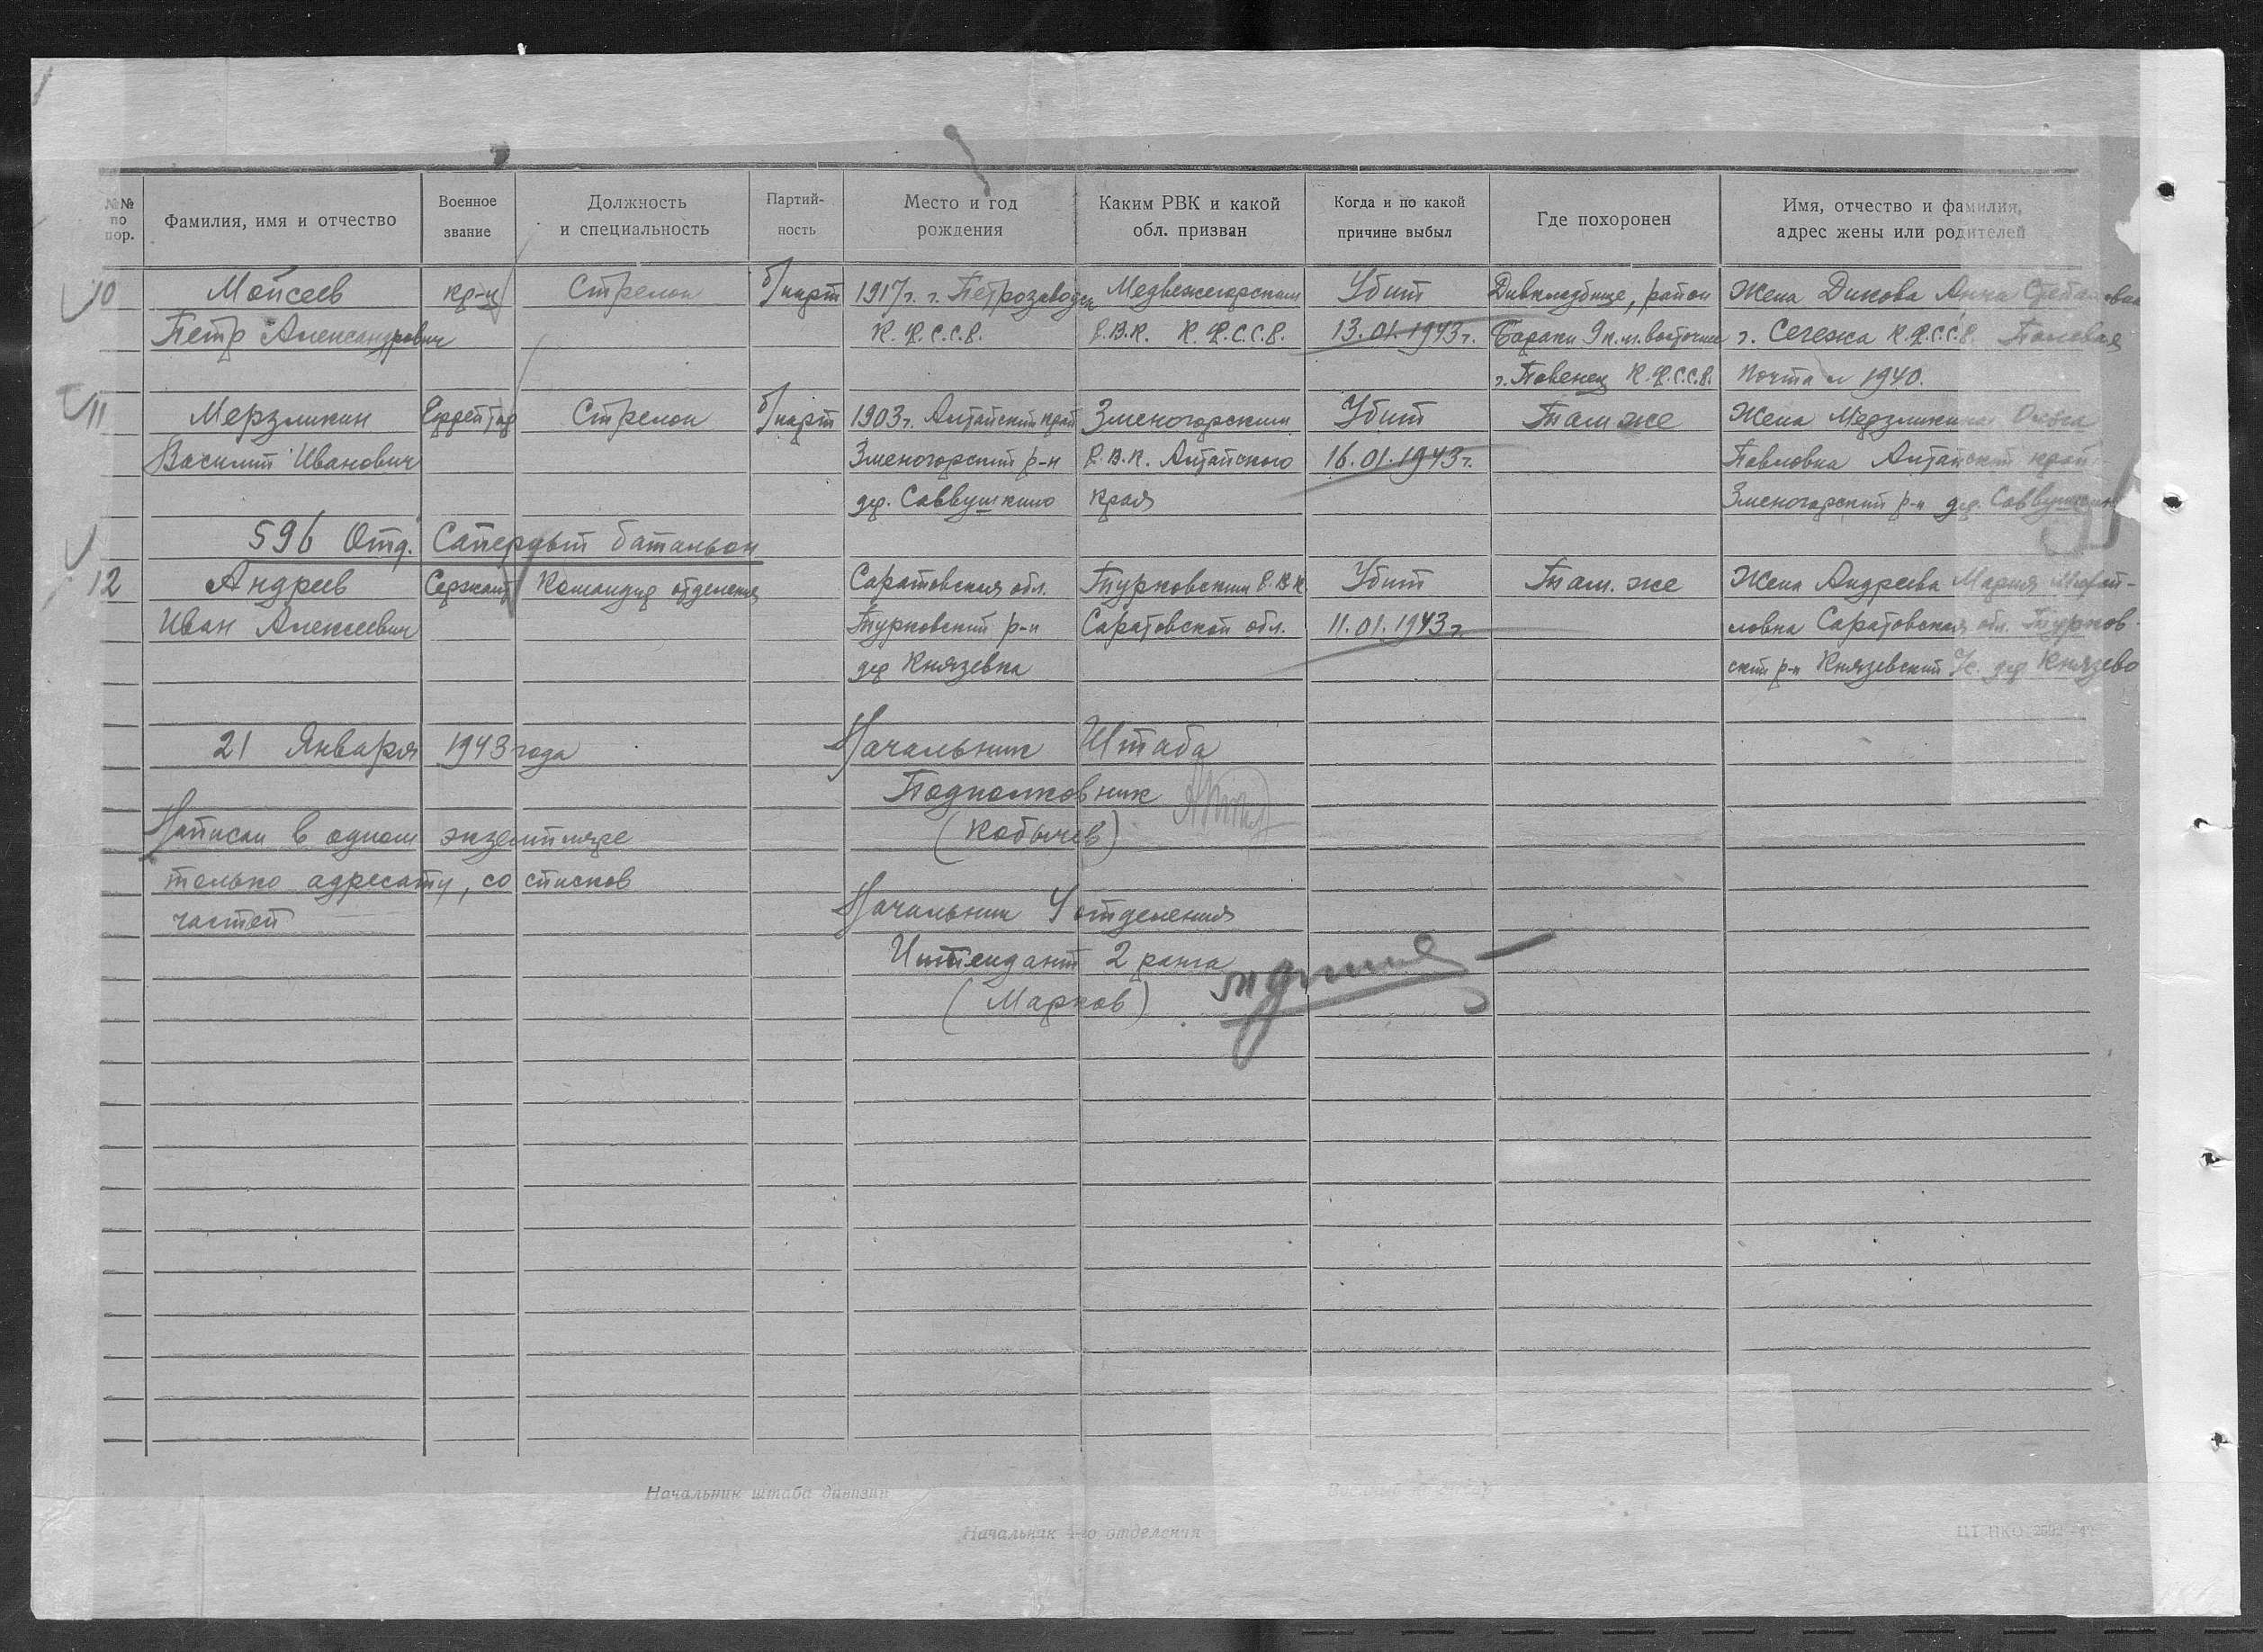 №№ по пор. Фамилия, имя и отчество Военное звание Должность и специальность Партийность Место и год рождения Каким РВК и какой обл. призван Когда и по какой причине выбыл Где похоронен Имя, отчество и фамилия, адрес жены или родителей
10 Мойсеев кр-ц Стрелок б/парт 1917 г. г. Петрозаводск Медвежегорским Убит Дивкладбище, район Жена Дикова Анна Степановна
Петр Александрович К.Ф.С.С.Р. Р.В.К. К.Ф.С.С.Р. 13.01.1943 г. Бараки 9 к.м. восточнее г. Сегежа К.Ф.С.С.Р. Полевая
г. Повенец К.Ф.С.С.Р. почта 1940.
11 Мерзликин Ефрейтор Стрелок б/парт 1903 г. Алтайский край Змеиногорским Убит Там же Жена Мерзликина Ольга
Василий Иванович Змеиногорский р-н Р.В.К. Алтайского 16.01.1943 г. Павловна Алтайский край
дер. Саввушкино края Змеиногорский р-н дер. Саввушкино
596 Отд. Саперный батальон
12 Андреев Сержант Командир отделения Саратовская обл. Турковским Р.В.К. Убит Там же Жена Андреева Мария Михай-
Иван Алексеевич Турковский р-н Саратовской обл. 11.01.1943 г. ловна Саратовская обл. Турков-
дер Князевка ский р-н Князевский с/с. дер Князево
21 Января 1943 года Начальник Штаба
Подполковник
Написан в одном экземпляре (Кобычев)
только адресату, со списков
частей Начальник 4 отделения
Интендант 2 ранга
(Марков)
Начальник штаба дивизии
Начальник 4-го отделения